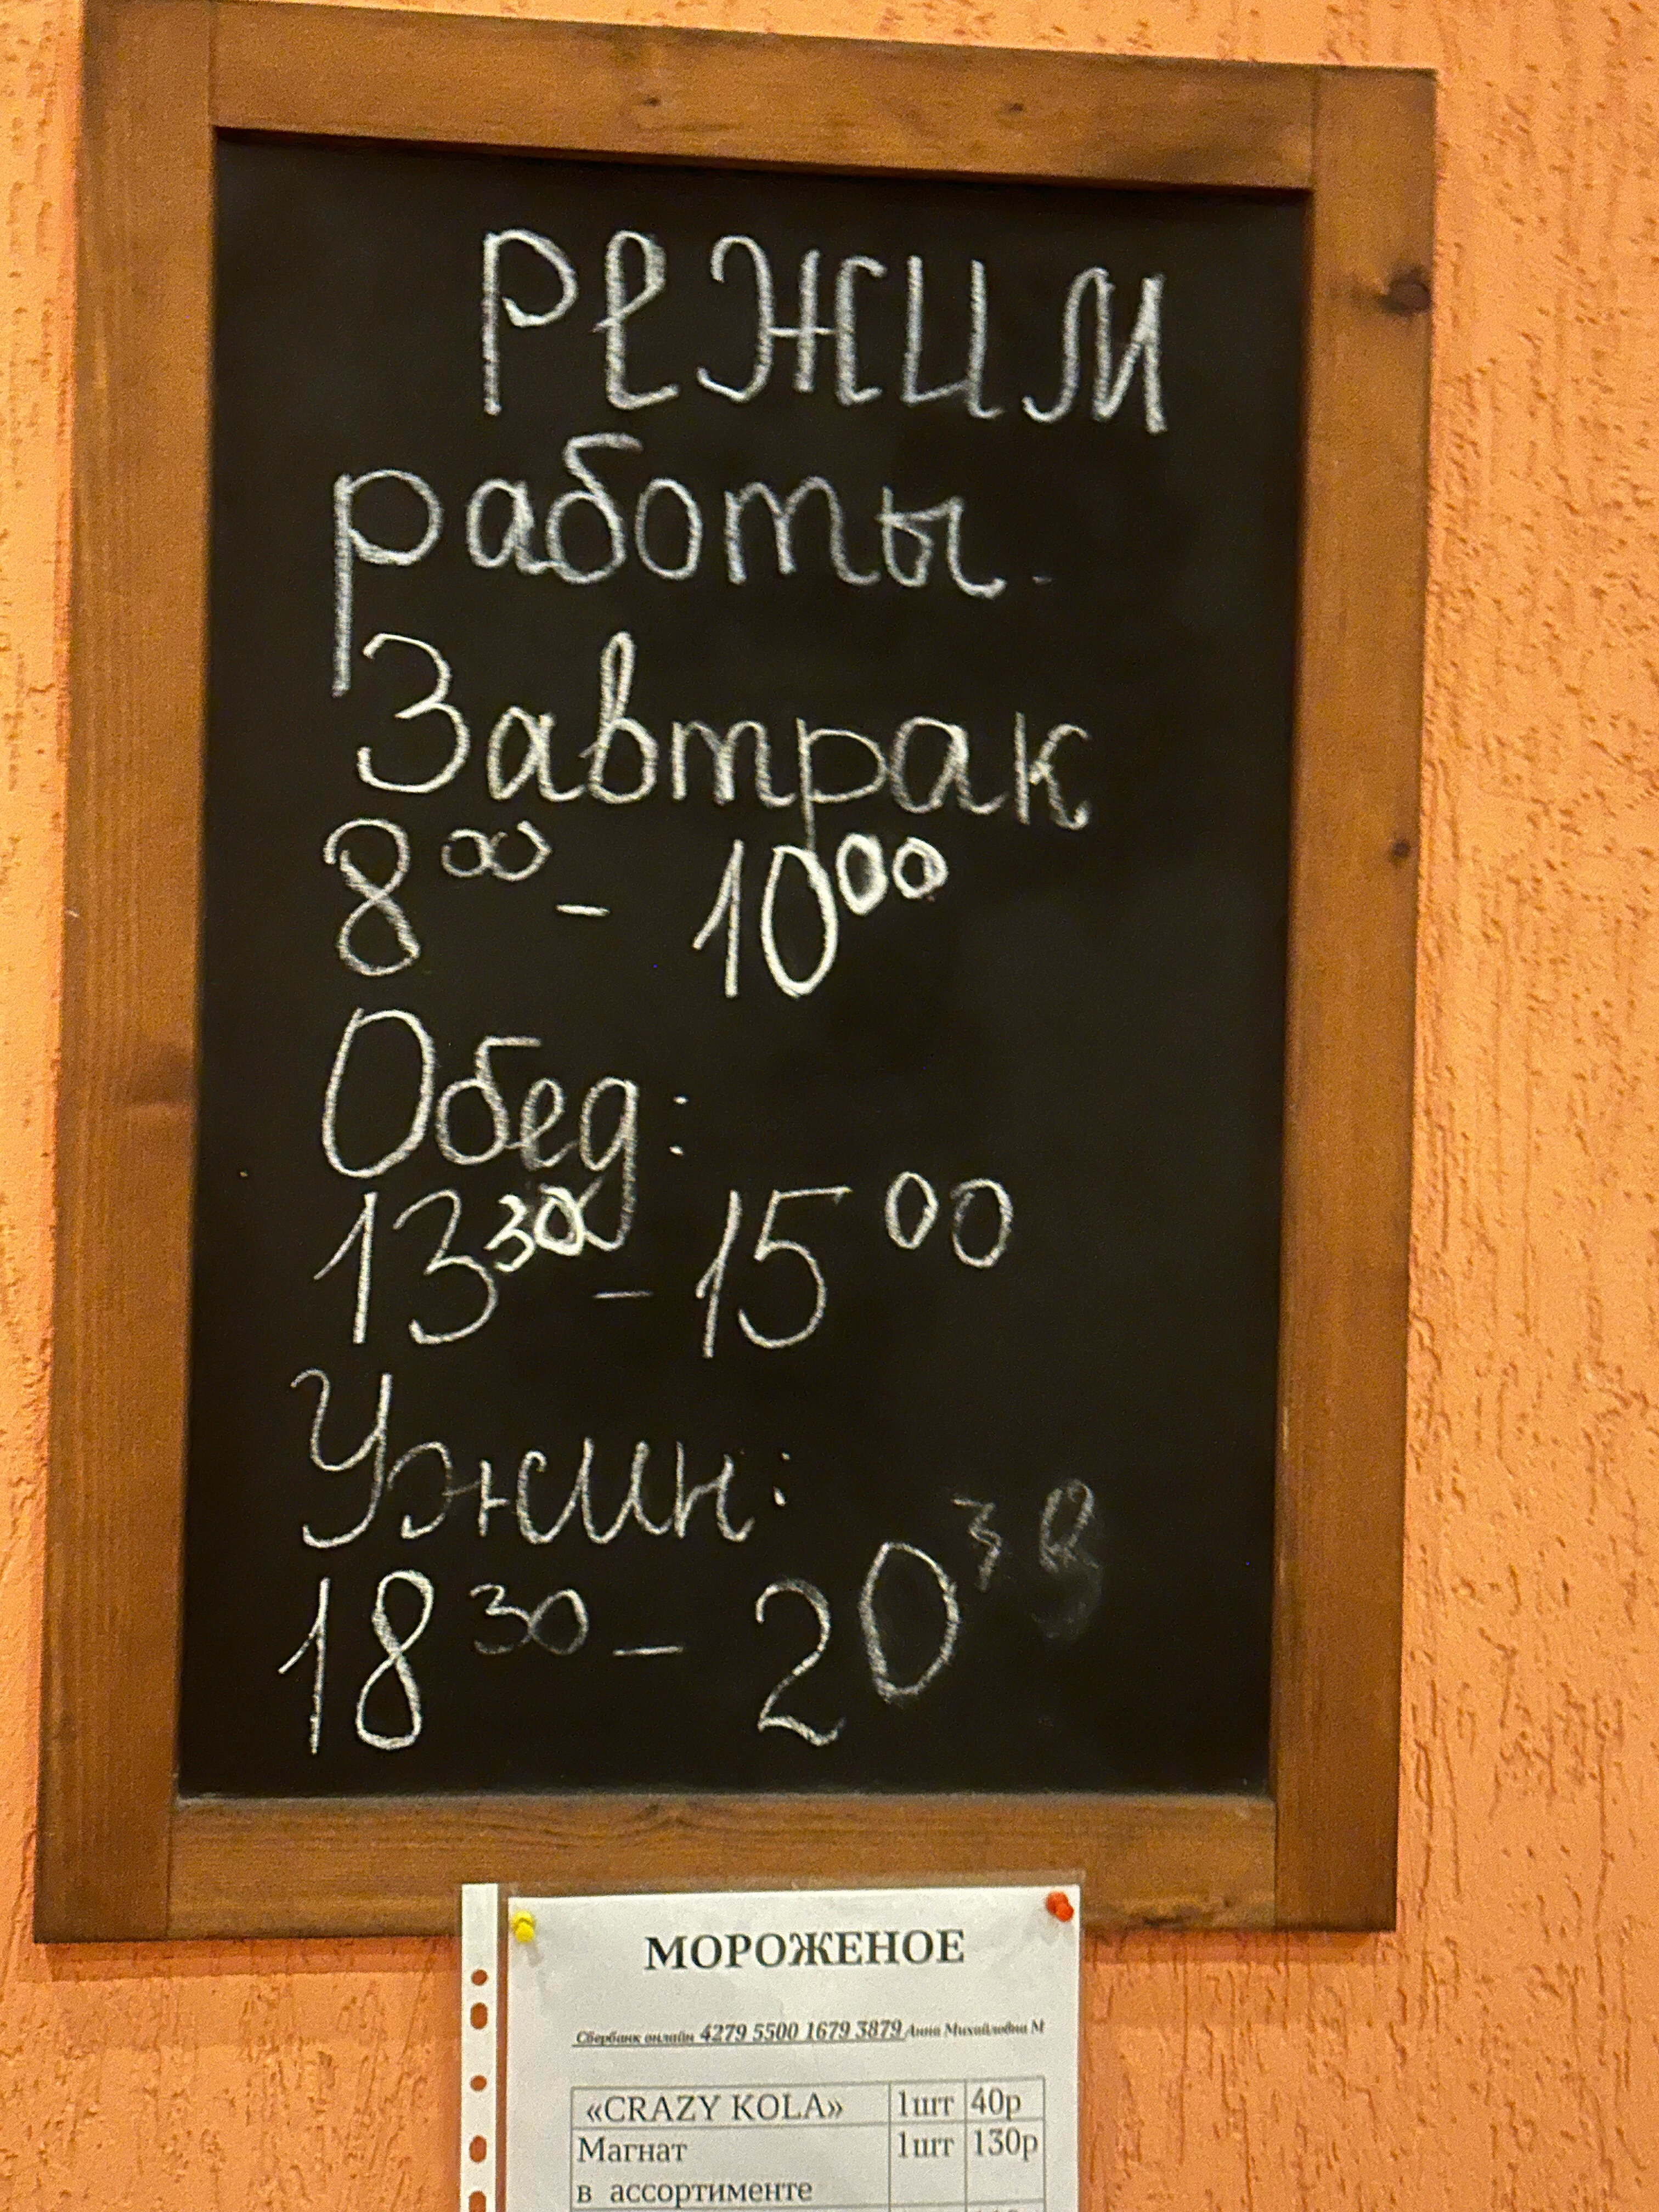 Режим
работы.
Завтрак
8⁰⁰ - 10⁰⁰
Обед:
13³⁰ - 15⁰⁰
Ужин:
18³⁰ - 20³⁰
МОРОЖЕНОЕ
Сбербанк онлайн 4279 5500 1679 3879 Анна Михайловна М
«CRAZY KOLA» 1шт 40р
Магнат 1шт 130р
в ассортименте